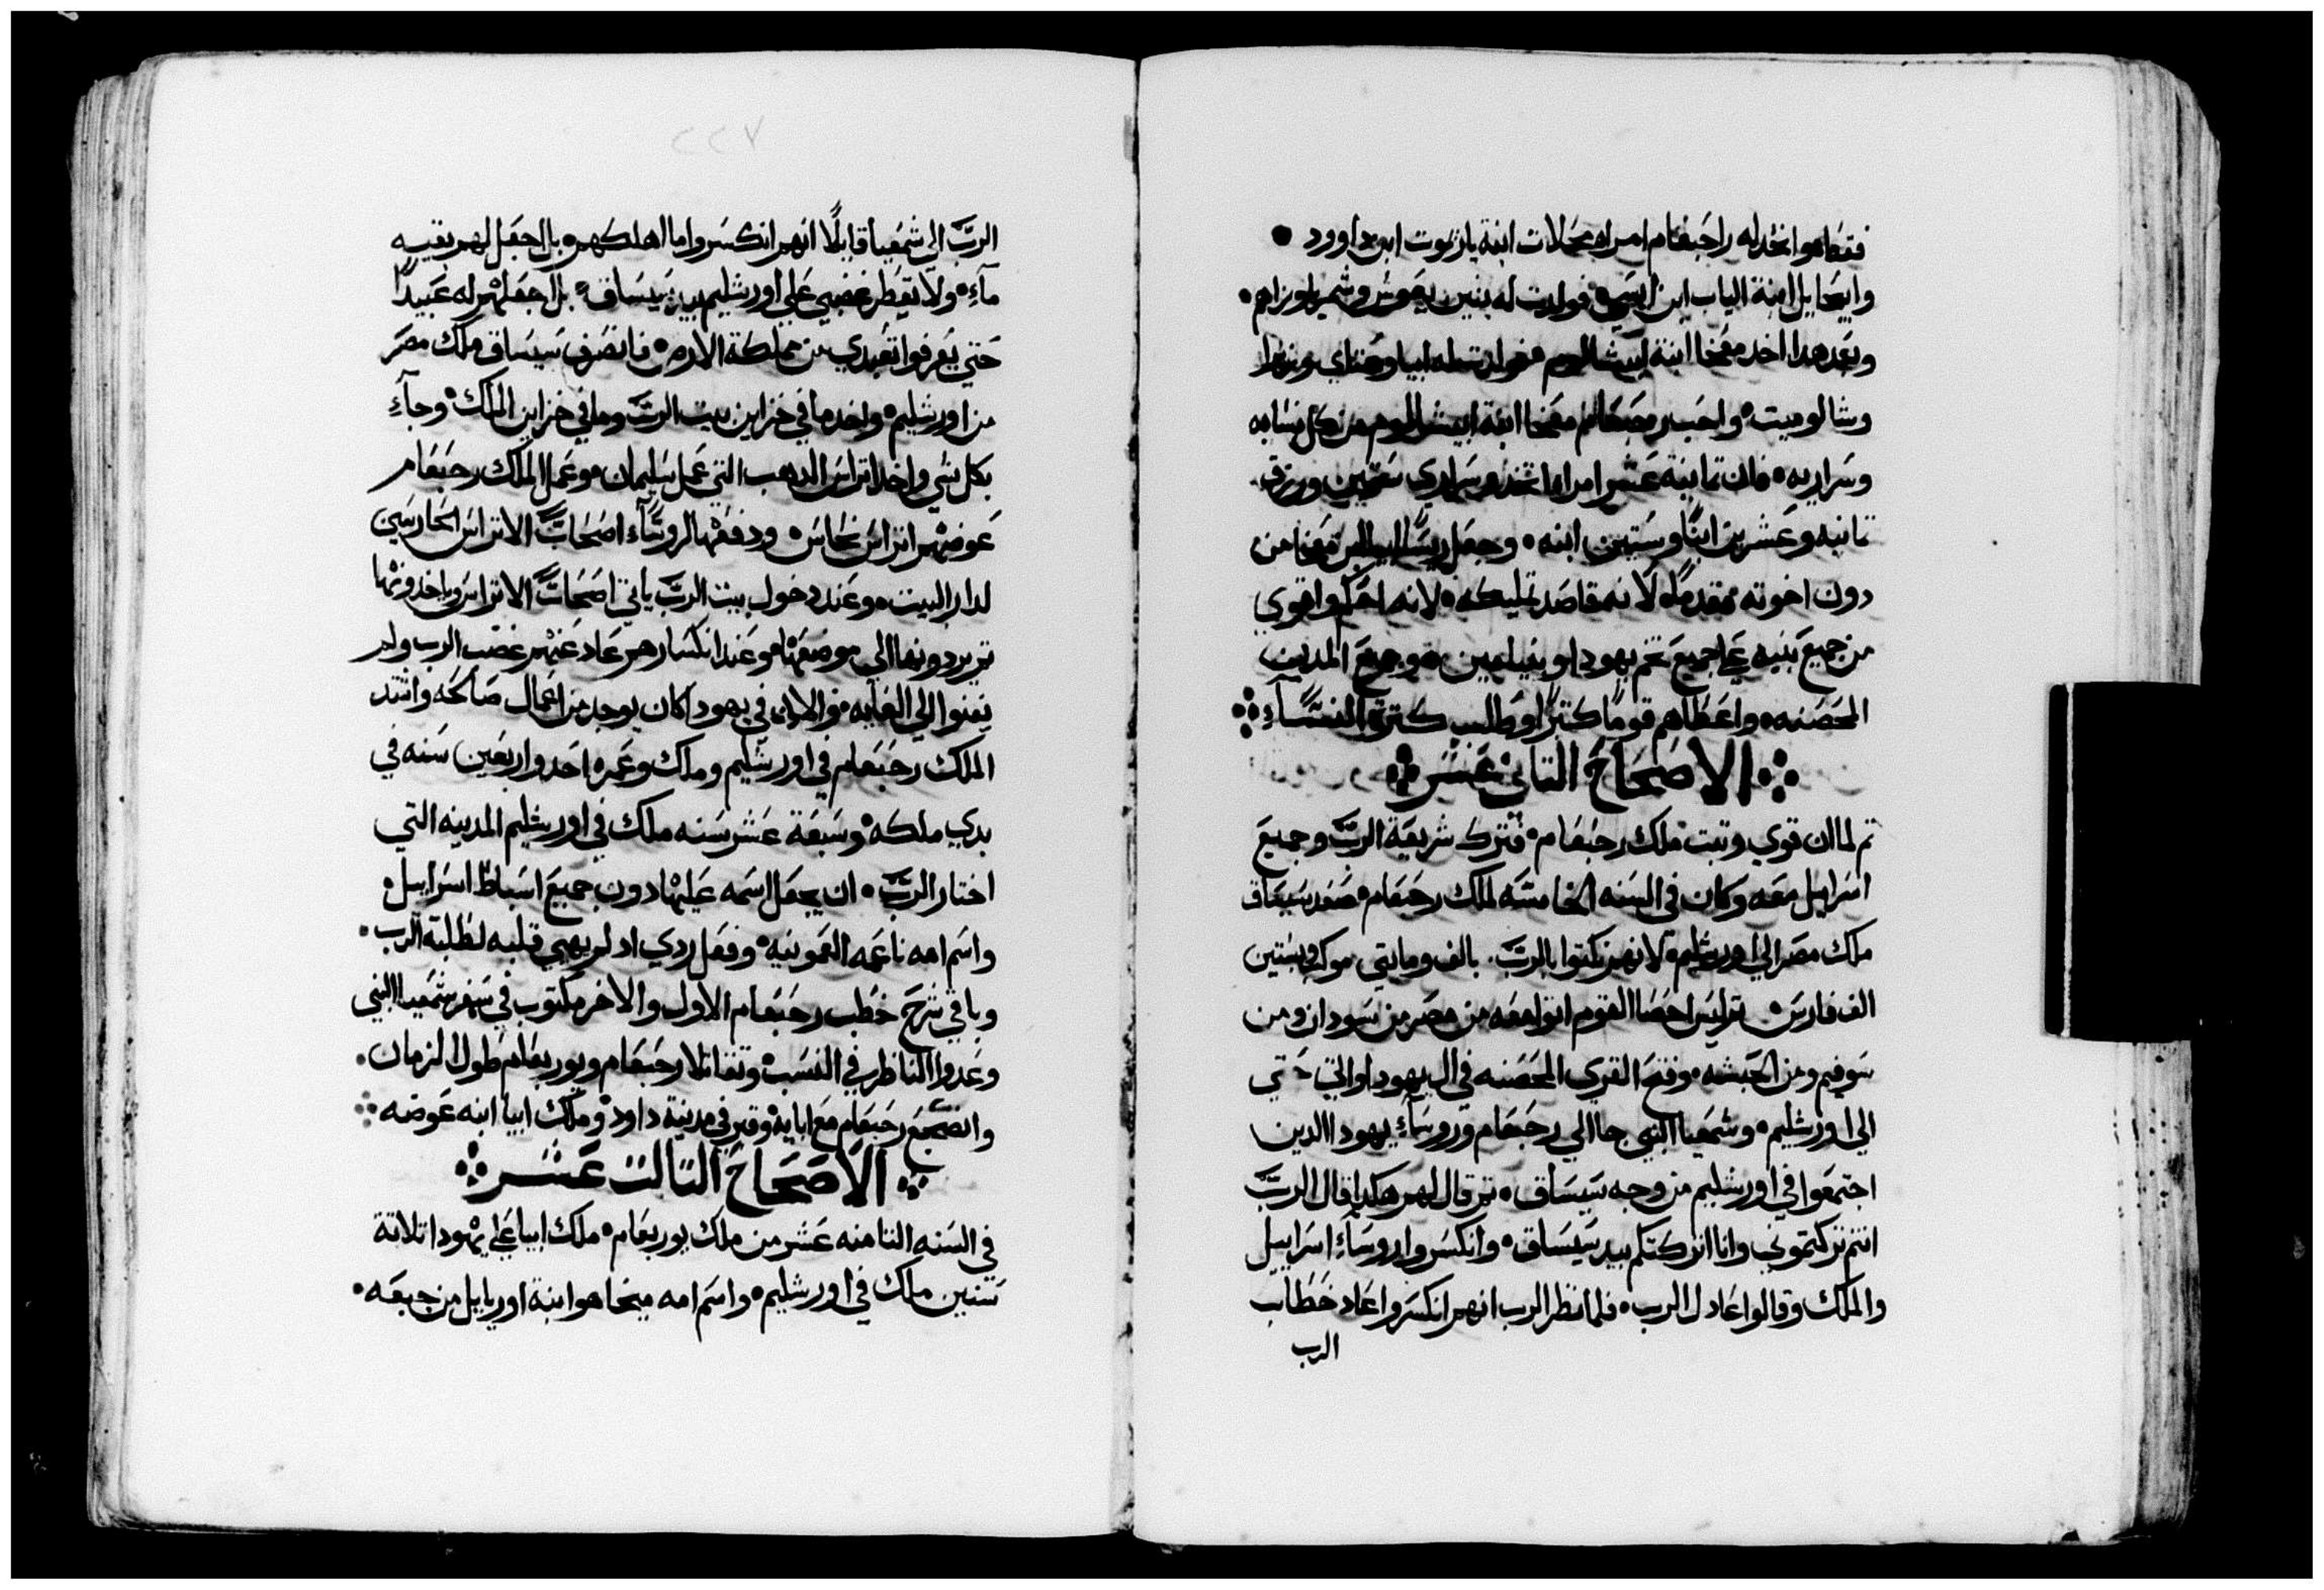 فقضاهوا اتخد له راحبعام امراه محلات ابنة ياريموت ابن داوود
وابيحايل ابنة الياب ابن ايسي فولدت له بنين يعوش وشمريا وزاهم
وبعد هدا اخد معخا ابنة ابيشالوم فولدت له ابيا وعتاي وزيزا
وشالوميت واحب رحبعام معخا ابنة ابيشالوم من كل نسايه
وسراريه فان تمانية عشر امراه اتخد وسراري ستين ورزق
تمانيه وعشرين ابنًا وستين ابنه وجعل ريسًا ابيا ابن معخا من
دون اخوته مقدمًا لانه قاصد تمليكه لانه احكم واقوي
من جميع بنيه علي جميع تخم يهودا وبنيامين وجميع المدين
المحصنه واعطاهم قومًا كتيرًا وطلب كترة النسآء
الاصحاح التاني عشر
تم لما ان قوي وتبت ملك رحبعام فترك شريعة الرب وجميع
اسراييل معه وكان في السنه الخامسه لملك رحبعام صعد سيساق
ملك مصر الي اورشليم لانهم نكتوا بالرب بالف ومايتي موكب وستين
الف فارس تم ليس احصا القوم اتوا معه من مصر من سودان ومن
سوفيم ومن الحبشه وفتح القري المحصنه في ال يهودا واتي حتي
الي اورشليم وشمعيا النبي جا الي رحبعام وروسآء يهودا الدين
اجتمعوا في اورشليم من وجه سيساق تم قال لهم هكدا قال الرب
انتم تركتموني وانا اترككم بيد سيساق وانكسروا روسآء اسراييل
والملك وقالوا عادل الرب فلما نظر الرب انهم انكسروا عاد خطاب
الرب
الرب الي شمعيا قايلًا انهم انكسروا ما اهلكهم بل اجعل لهم بقيه
مآء ولا تقطر غضبي علي اورشليم بيد سيساق بل اجعلهم له عبيدًا
حتي يعرفوا تعبدي من مملكة الارض فانصرف سيساق ملك مصر
من اورشليم واخد ما في خزاين بيت الرب وما في خزاين الملك وجآء
بكل شي واخد اتراس الدهب التي عمل سليمان وعمل الملك رحبعام
عوضهم اتراس نحاس ودفعها لروسآء اصحاب الاتراس الحارسين
لدار البيت وعند دخول بيت الرب ياتي اصحاب الاتراس وياخدونها
تم يردونها الي موضعها وعند انكسارهم عاد عنهم غضب الرب ولم
يفنوا الي الغايه والان في يهودا كان يوجد من اعمال صالحه واشتد
الملك رحبعام في اورشليم وملك وعمره احد واربعين سنه في
بدي ملكه وسبعة عشر سنه ملك في اورشليم المدينه التي
اختار الرب ان يجعل اسمه عليها دون جميع اسباط اسراييل
واسم امه ناعمه العمونيه وفعل ردي اد لم يهيي قلبه لطلبة الرب
وباقي شرح خطب رحبعام الاول والاخر مكتوب في سفر شمعيا النبي
وعدوا الناظر في النسب وتقاتلا رحبعام ويوربعام طول الزمان
وانضجع رحبعام مع ابايه وقبر في مدينة داود وملك ابيا ابنه عوضه
الاصحاح التالت عشر
في السنه التامنه عشر من ملك يوربعام ملك ابيا علي يهودا تلاتة
سنين ملك في اورشليم واسم امه ميخا هو ابنة اورياييل من جبعه